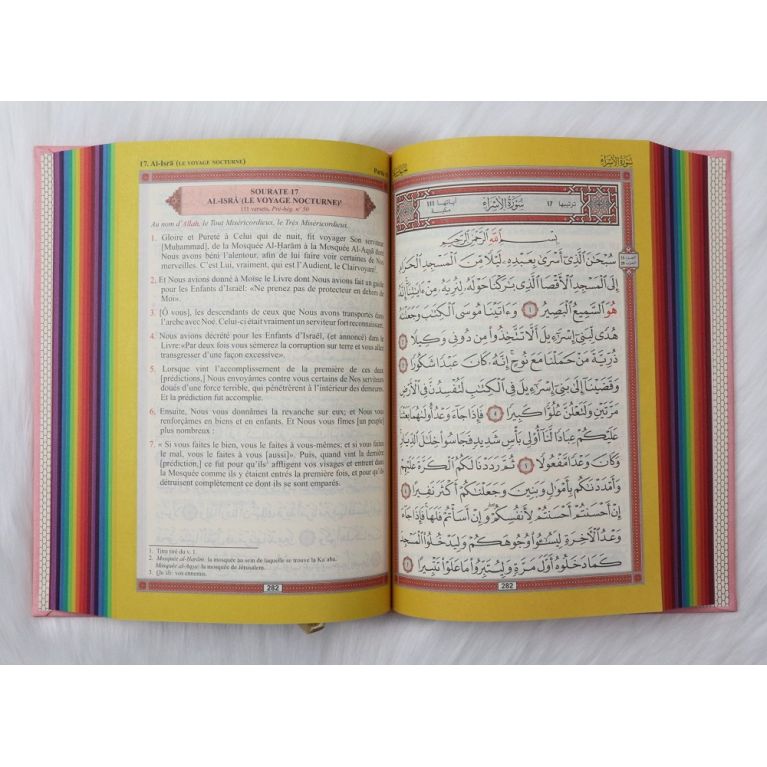 17. Al-Isrā (LE VOYAGE NOCTURNE)
SOURATE 17
AL-ISRĀ (LE VOYAGE NOCTURNE)¹
111 versets, Pré-hég. n° 50
Au nom d'Allah, le Tout Miséricordieux, le Très Miséricordieux.
1. Gloire et Pureté à Celui qui de nuit, fit voyager Son serviteur
[Muhammad], de la Mosquée Al-Harām à la Mosquée Al-Aqsā dont
Nous avons béni l'alentour, afin de lui faire voir certaines de Nos
merveilles. C'est Lui, vraiment, qui est l'Audient, le Clairvoyant.
2. Et Nous avions donné à Moïse le Livre dont Nous avions fait un guide
pour les Enfants d'Israël: «Ne prenez pas de protecteur en dehors de
Moi».
3. [Ô vous], les descendants de ceux que Nous avons transportés dans
l'arche avec Noé. Celui-ci était vraiment un serviteur fort reconnaissant.
4. Nous avions décrété pour les Enfants d'Israël, (et annoncé) dans le
Livre:«Par deux fois vous sèmerez la corruption sur terre et vous allez
transgresser d'une façon excessive».
5. Lorsque vint l'accomplissement de la première de ces deux
[prédictions,] Nous envoyâmes contre vous certains de Nos serviteurs
doués d'une force terrible, qui pénétrèrent à l'intérieur des demeures.
Et la prédiction fut accomplie.
6. Ensuite, Nous vous donnâmes la revanche sur eux; et Nous vous
renforçâmes en biens et en enfants. Et Nous vous fîmes [un peuple]
plus nombreux :
7. « Si vous faites le bien, vous le faites à vous-mêmes; et si vous faites
le mal, vous le faites à vous [aussi]». Puis, quand vint la dernière
[prédiction,] ce fut pour qu'ils³ affligent vos visages et entrent dans
la Mosquée comme ils y étaient entrés la première fois, et pour qu'ils
détruisent complètement ce dont ils se sont emparés.
1. Titre tiré du v. 1.
2. Mosquée al-Harām: la mosquée au sein de laquelle se trouve la Ka'aba.
Mosquée al-Aqsa: la mosquée de Jérusalem.
3. Qu'ils: vos ennemis.
282
سُورَةُ الإِسْرَاءِ
ترتيبها 17 سُورَةُ الإِسْرَاءِ آياتها 111 مكية
بِسْمِ اللَّهِ الرَّحْمَٰنِ الرَّحِيمِ
سُبْحَٰنَ الَّذِىٓ أَسْرَىٰ بِعَبْدِهِۦ لَيْلًا مِّنَ الْمَسْجِدِ الْحَرَامِ
إِلَى الْمَسْجِدِ الْأَقْصَا الَّذِى بَٰرَكْنَا حَوْلَهُۥ لِنُرِيَهُۥ مِنْ ءَايَٰتِنَآ إِنَّهُۥ
هُوَ السَّمِيعُ الْبَصِيرُ ١ وَءَاتَيْنَا مُوسَى الْكِتَٰبَ وَجَعَلْنَٰهُ
هُدًى لِّبَنِىٓ إِسْرَٰٓءِيلَ أَلَّا تَتَّخِذُوا۟ مِن دُونِى وَكِيلًا ٢
ذُرِّيَّةَ مَنْ حَمَلْنَا مَعَ نُوحٍ إِنَّهُۥ كَانَ عَبْدًا شَكُورًا ٣
وَقَضَيْنَآ إِلَىٰ بَنِىٓ إِسْرَٰٓءِيلَ فِى الْكِتَٰبِ لَتُفْسِدُنَّ فِى الْأَرْضِ
مَرَّتَيْنِ وَلَتَعْلُنَّ عُلُوًّا كَبِيرًا ٤ فَإِذَا جَآءَ وَعْدُ أُولَىٰهُمَا بَعَثْنَا
عَلَيْكُمْ عِبَادًا لَّنَآ أُو۟لِى بَأْسٍ شَدِيدٍ فَجَاسُوا۟ خِلَٰلَ الدِّيَارِ
وَكَانَ وَعْدًا مَّفْعُولًا ٥ ثُمَّ رَدَدْنَا لَكُمُ الْكَرَّةَ عَلَيْهِمْ
وَأَمْدَدْنَٰكُم بِأَمْوَٰلٍ وَبَنِينَ وَجَعَلْنَٰكُمْ أَكْثَرَ نَفِيرًا ٦
إِنْ أَحْسَنتُمْ أَحْسَنتُمْ لِأَنفُسِكُمْ وَإِنْ أَسَأْتُمْ فَلَهَا فَإِذَا جَآءَ
وَعْدُ الْءَاخِرَةِ لِيَسُۥٓـُٔوا۟ وُجُوهَكُمْ وَلِيَدْخُلُوا۟ الْمَسْجِدَ
كَمَا دَخَلُوهُ أَوَّلَ مَرَّةٍ وَلِيُتَبِّرُوا۟ مَا عَلَوْا۟ تَتْبِيرًا ٧
282